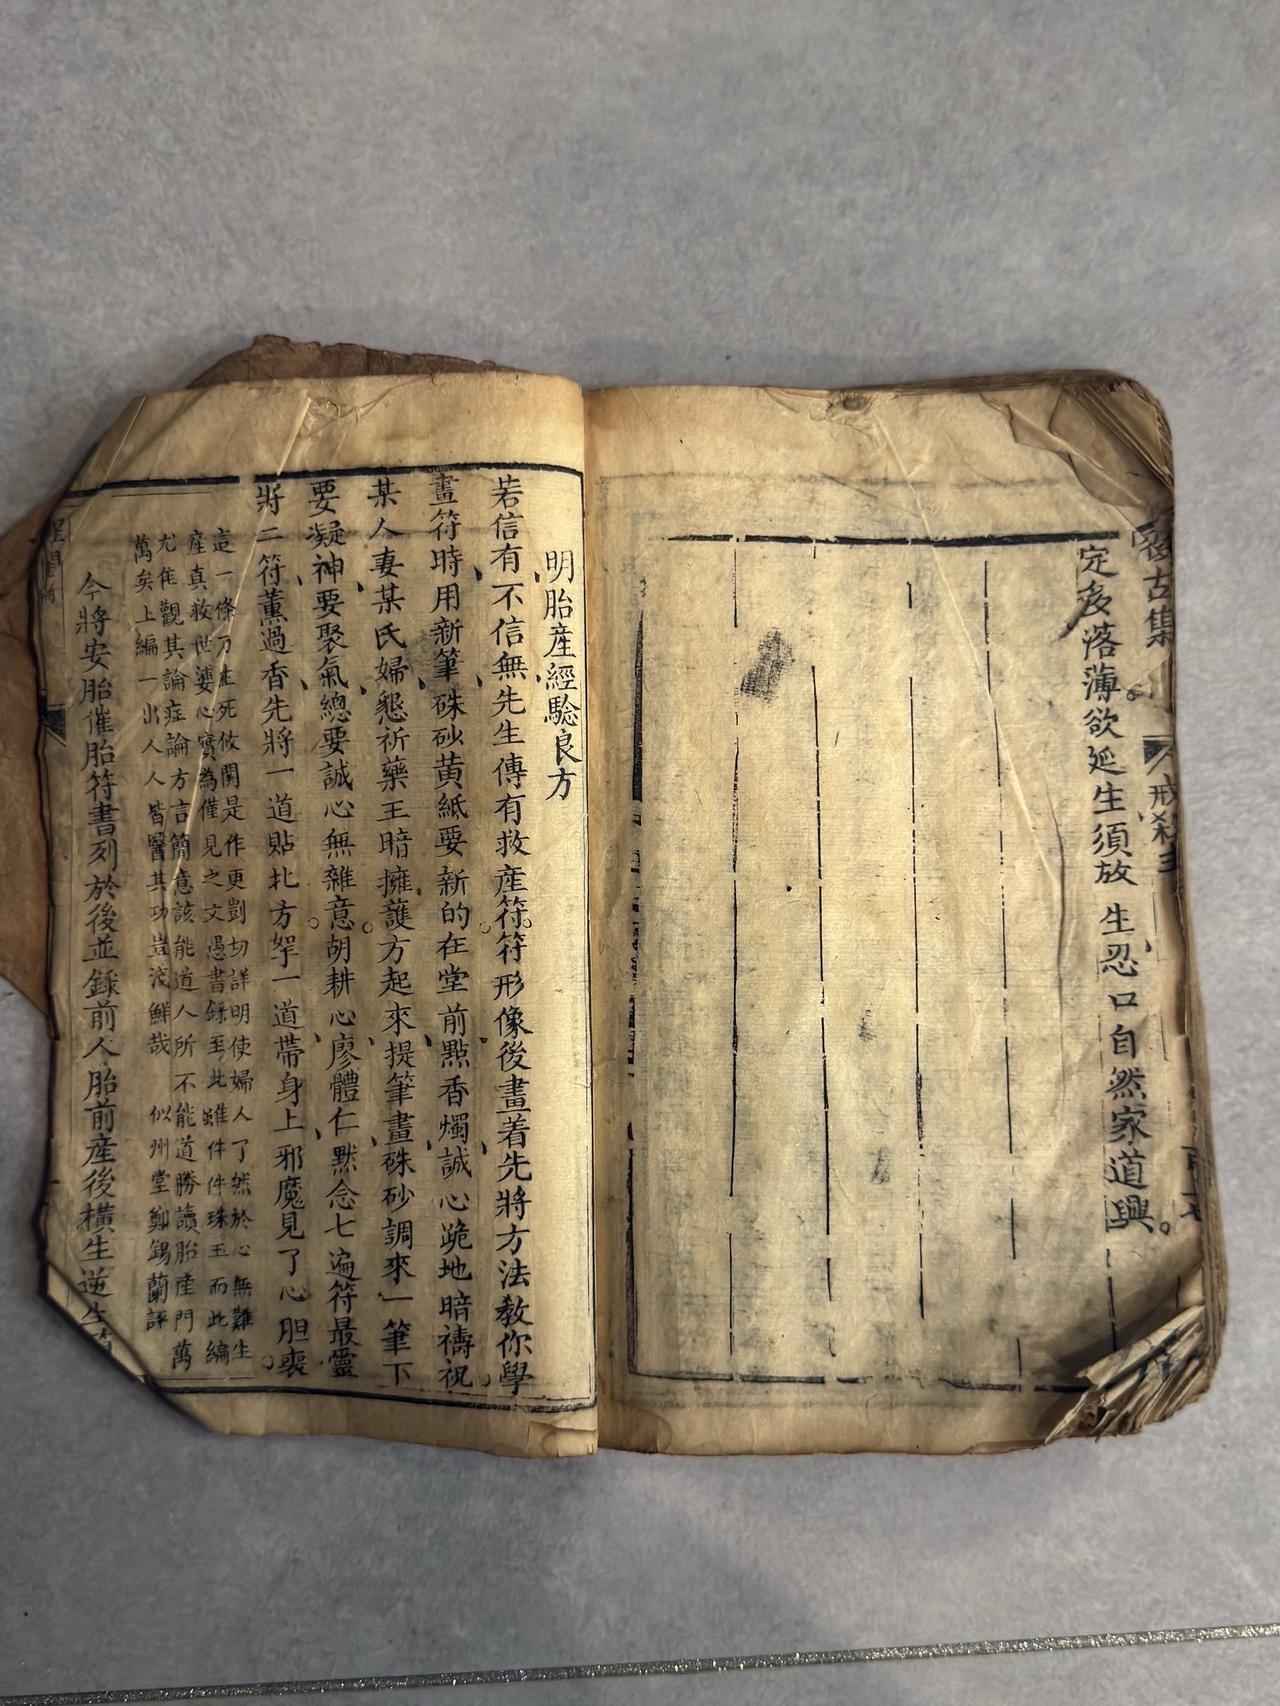 古集
戒殺
定多落薄欲延生須放生忍口自然家道興。
明胎產經驗良方
若信有不信無先生傳有救產符符形像後畫着先將方法教你學
畫符時用新筆硃砂黃紙要新的在堂前點香燭誠心跪地暗禱祝
某人妻某氏婦懇祈藥王暗擁護方起來提筆畫硃砂調來一筆下
要凝神要聚氣總要誠心無雜意胡耕心廖體仁默念七遍符最靈
將二符薰過香先將一道貼北方挐一道帶身上邪魔見了心胆喪
這一條乃生死攸關是作更剴切詳明使婦人了然於心無難生
產真救世婆心實為僅見之文愚書錄至此雖件件珠玉而此編
尤佳觀其論症論方言簡意該能道人所不能道勝讀胎產門萬
萬矣上編一出人人皆醫其功豈淺鮮哉 似州堂鄭錫蘭評
今將安胎催胎符書列於後並錄前人胎前產後橫生逆生